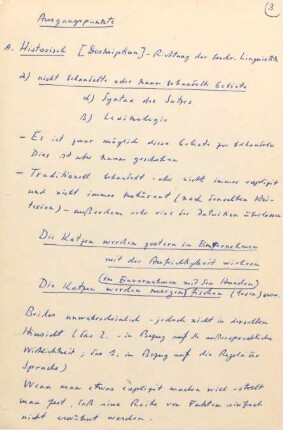 3
Ausgangspunkte
A. Historisch [Deskription] - Richtung der Linguistik
a) nicht behandelte oder kaum behandelte Gebiete
α) Syntax des Satzes
β) Lexikologie
- Es ist zwar möglich diese Gebiete zu behandeln
Dies ist aber kaum geschehen
- Traditionell behandelt - aber nicht immer explizit
und nicht immer kohärent (nach denselben Kri-
terien) - außerdem sehr viel der Intuition überlassen
Die Katzen werden gestern im Einvernehmen
mit der Aufsichtigkeit
(im Einvernehmen mit den Hunden)
Die Katzen werden morgen
Beides unwahrscheinlich - jedoch nicht in derselben
Hinsicht (das 1. - in Bezug auf die außersprachliche
Wirklichkeit; das 2. in Bezug auf die Regeln der
Sprache)
Wenn man etwas explizit machen will - stellt
man fest, daß eine Reihe von Fakten einfach
nicht erwähnt werden.